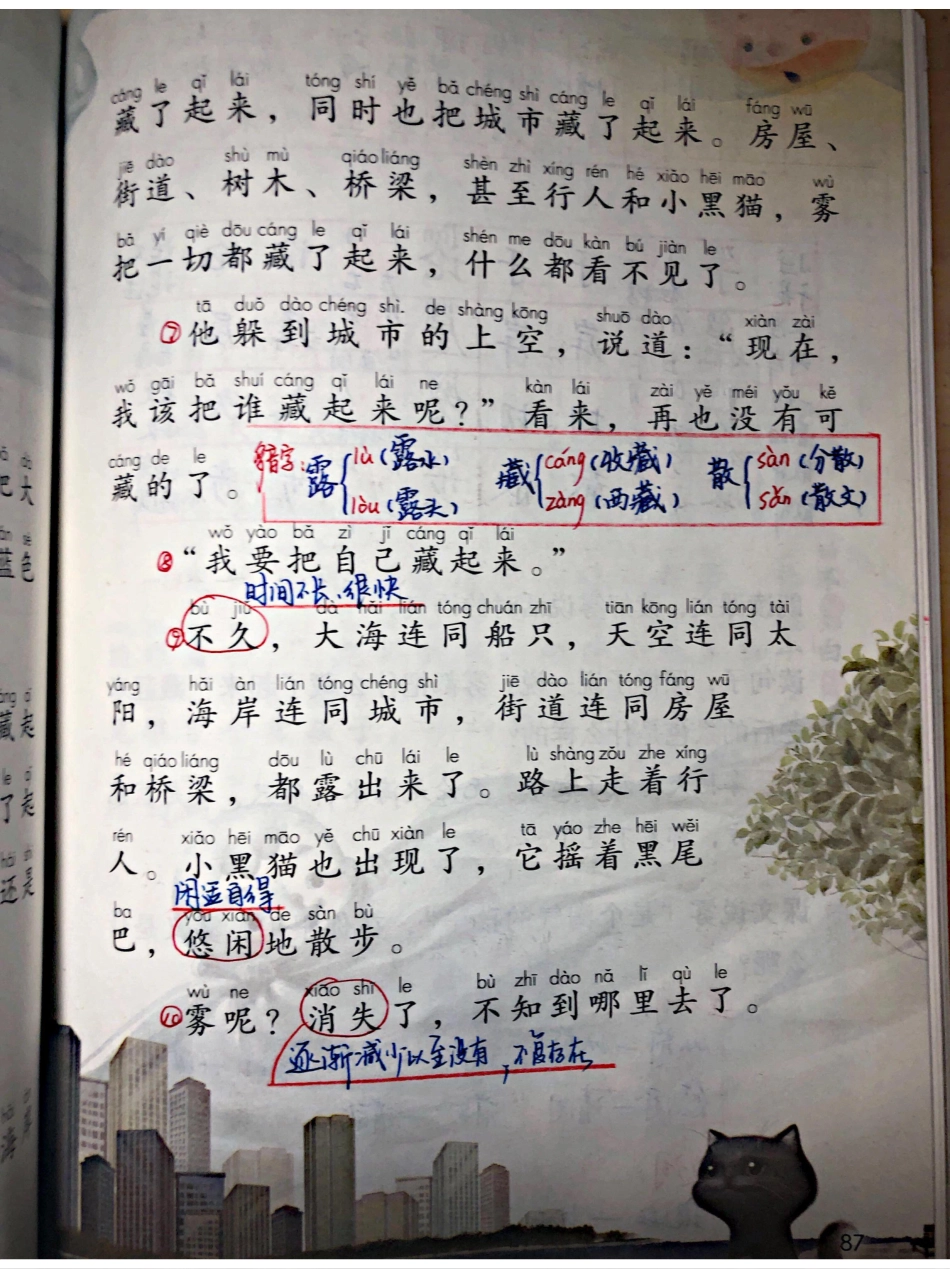 cáng le qǐ lái tóng shí yě bǎ chéng shì cáng le qǐ lái fáng wū
藏了起来，同时也把城市藏了起来。房屋、
jiē dào shù mù qiáo liáng shèn zhì xíng rén hé xiǎo hēi māo wù
街道、树木、桥梁，甚至行人和小黑猫，雾
bǎ yí qiè dōu cáng le qǐ lái shén me dōu kàn bú jiàn le
把一切都藏了起来，什么都看不见了。
tā duǒ dào chéng shì de shàng kōng shuō dào xiàn zài
⑦他躲到城市的上空，说道：“现在，
wǒ gāi bǎ shuí cáng qǐ lái ne kàn lái zài yě méi yǒu kě
我该把谁藏起来呢？”看来，再也没有可
cáng de le
藏的了。
多音字：露 lù（露水） lòu（露头） 藏 cáng（收藏） zàng（西藏） 散 sàn（分散） sǎn（散文）
wǒ yào bǎ zì jǐ cáng qǐ lái
⑧“我要把自己藏起来。”
时间不长、很快
bù jiǔ dà hǎi lián tóng chuán zhī tiān kōng lián tóng tài
⑨不久，大海连同船只，天空连同太
yáng hǎi àn lián tóng chéng shì jiē dào lián tóng fáng wū
阳，海岸连同城市，街道连同房屋
hé qiáo liáng dōu lù chū lái le lù shàng zǒu zhe xíng
和桥梁，都露出来了。路上走着行
rén xiǎo hēi māo yě chū xiàn le tā yáo zhe hēi wěi
人。小黑猫也出现了，它摇着黑尾
闲适自得
ba yōu xián de sàn bù
巴，悠闲地散步。
wù ne xiāo shī le bù zhī dào nǎ lǐ qù le
⑩雾呢？消失了，不知到哪里去了。
逐渐减少以至没有，不复存在
87